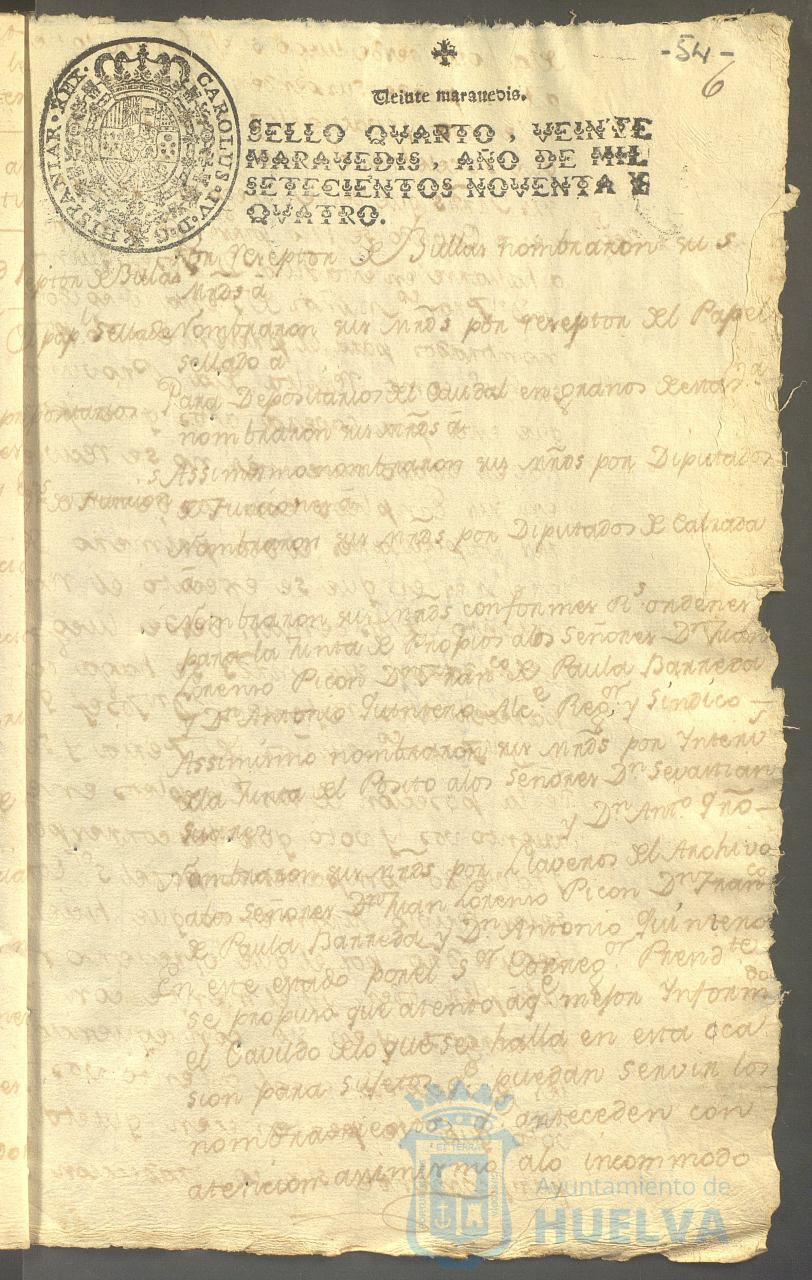 -54-
6
HISPANIAR·REX· CAROLUS·IV·D·G·
Veinte maravedis.
SELLO QVARTO, VEINTE
MARAVEDIS, AÑO DE MIL
SETECIENTOS NOVENTA Y
QVATRO.
Por Rezeptor de Bullas nombraron sus
mrds á
Nombraron sus mrds por rezeptor del Papel
sellado á
Para Depositarios del Caudal en granos
nombraron sus mrds á
Assimismo nombraron sus mrds por Diputados
de Funciones á
Nombraron sus mrds por Diputados de Calzada
á
Nombraron sus mrds conformes Rs ordenes
para la Junta de Propios alos Señores Dn Juan
Lorenzo Picon Dn Franco de Paula Barreda
y Dn Antonio Quintero Alce Regor y Sindico
Assimismo nombraron sus mrds por Interv
dela Junta del Posito alos Señores Dn Sevastian
Suarez y Dn Anto Qño
Nombraron sus mrds por Llaveros del Archivo
alos Señores Dn Juan Lorenzo Picon Dn Franco
de Paula Barreda y Dn Antonio Quintero
En este estado por el Sor Corregor Prendte
se propuso que atento aqe mejor Informdo
el Cavildo delo que se halla en esta oca
sion para sujetos qe puedan servir los
nombramientos q anteceden con
atencion assimismo alo incommodo
eptor de Bulas
Papl Sellado
Depositarios
s de Funcion
Ayuntamiento de
HUELVA